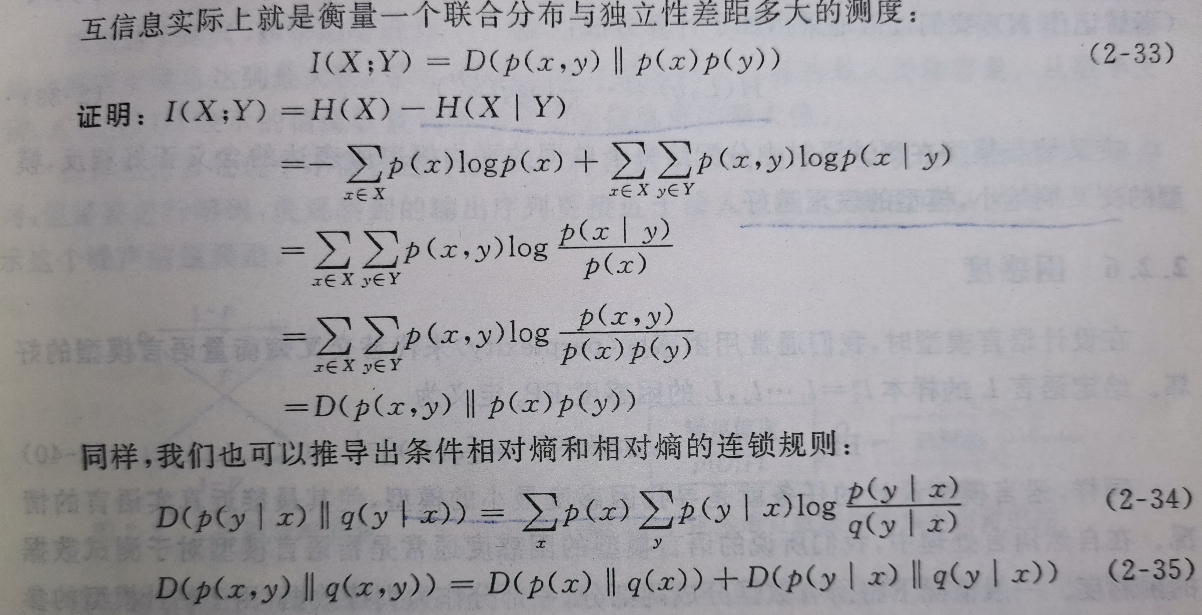 互信息实际上就是衡量一个联合分布与独立性差距多大的测度：
I(X;Y) = D(p(x,y) ∥ p(x)p(y)) (2-33)
证明：I(X;Y) = H(X) − H(X | Y)
= − ∑_{x∈X} p(x)logp(x) + ∑_{x∈X} ∑_{y∈Y} p(x,y)logp(x | y)
= ∑_{x∈X} ∑_{y∈Y} p(x,y)log \frac{p(x | y)}{p(x)}
= ∑_{x∈X} ∑_{y∈Y} p(x,y)log \frac{p(x,y)}{p(x)p(y)}
= D(p(x,y) ∥ p(x)p(y))
同样,我们也可以推导出条件相对熵和相对熵的连锁规则：
D(p(y | x) ∥ q(y | x)) = ∑_{x} p(x) ∑_{y} p(y | x)log \frac{p(y | x)}{q(y | x)} (2-34)
D(p(x,y) ∥ q(x,y)) = D(p(x) ∥ q(x)) + D(p(y | x) ∥ q(y | x)) (2-35)